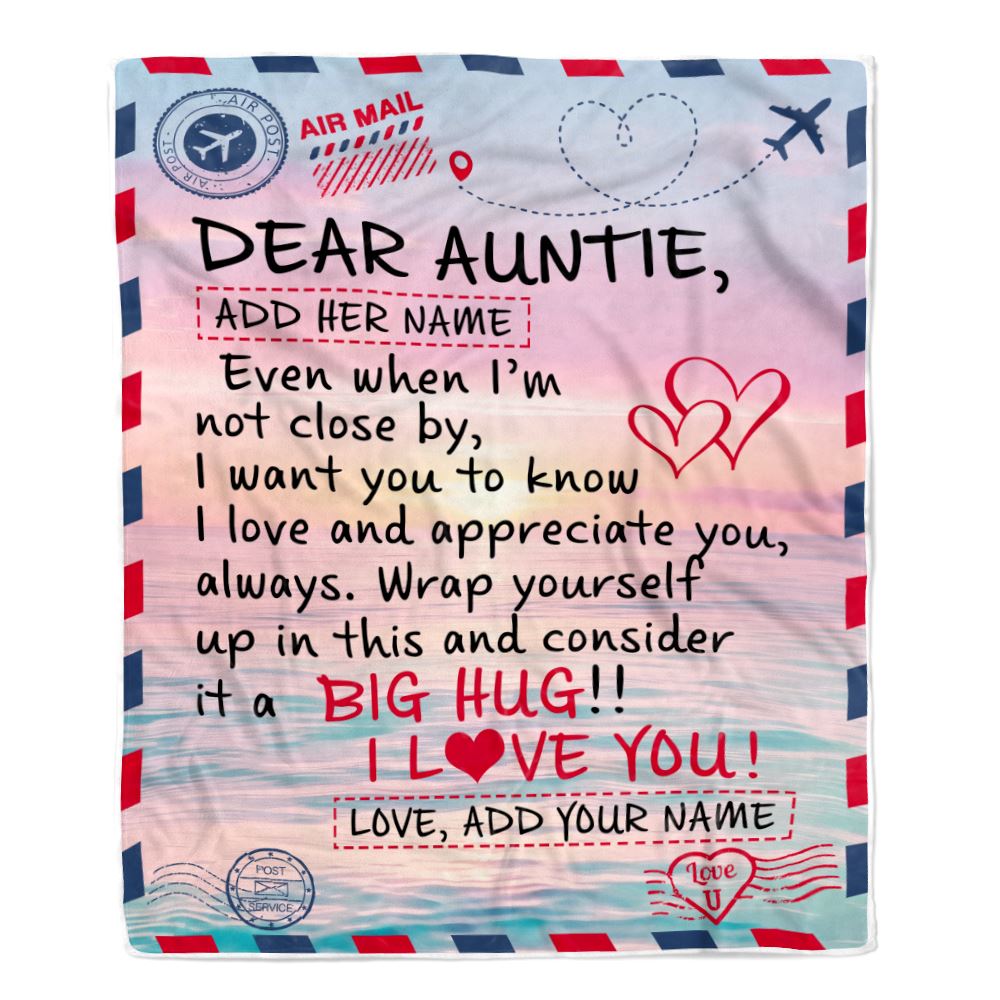 AIR POST
AIR POST
AIR POST
AIR MAIL
DEAR AUNTIE,
ADD HER NAME
Even when I'm
not close by,
I want you to know
I love and appreciate you,
always. Wrap yourself
up in this and consider
it a BIG HUG!!
I L♥VE YOU!
LOVE, ADD YOUR NAME
POST
SERVICE
Love
U